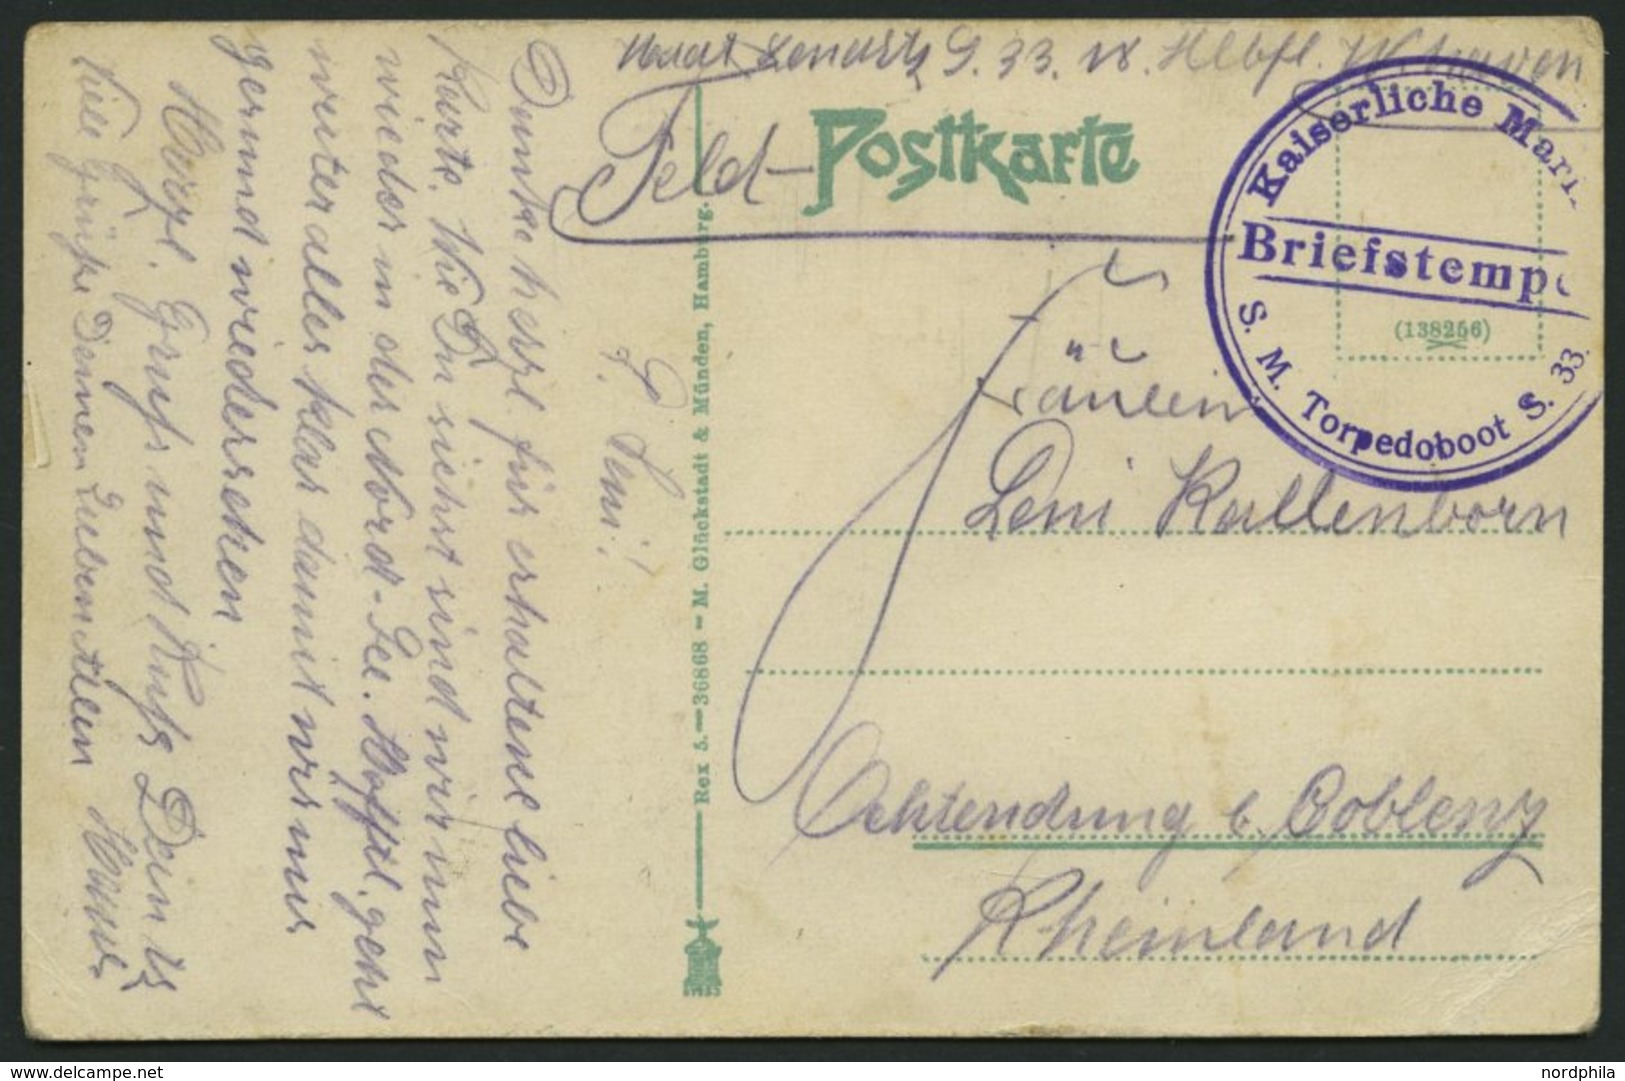 S. 33. IV. Hlbfl. W'haven
Feld-Postkarte
Kaiserliche Mari
Briefstempe
S. M. Torpedoboot S. 33.
(138256)
Fräulein
Leni Kallenborn
Ochtendung b. Coblenz
Rheinland
L. Leni!
Danke herzl. für erhaltene liebe
Karte. Wie Du siehst sind wir nun
wieder in der Nord-See. Hofftl. geht
weiter alles klar damit wir uns
gesund wiedersehen
Herzl. Gruß und Kuß Dein
Viele Grüße Deinen Lieben Allen
Rex 5.—36868 - M. Glückstadt & Münden, Hamburg.
nordphila